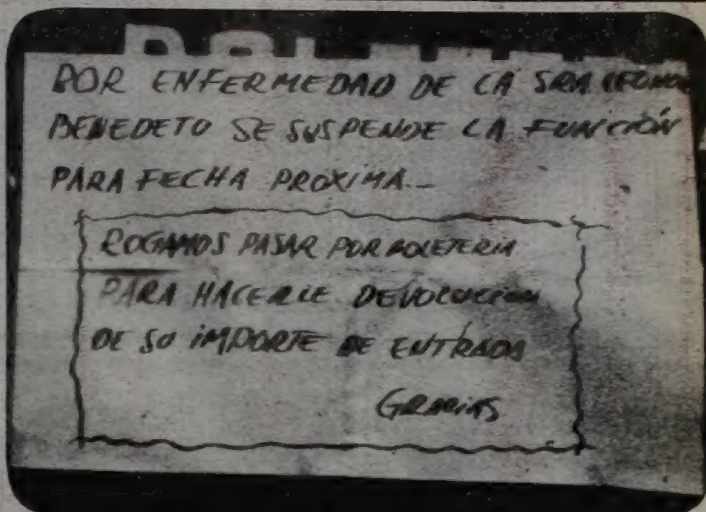 POR ENFERMEDAD DE LA SRA LEONOR
BENEDETO SE SUSPENDE LA FUNCIÓN
PARA FECHA PROXIMA._
ROGAMOS PASAR POR BOLETERIA
PARA HACERLE DEVOLUCION
DE SU IMPORTE DE ENTRADA
GRACIAS